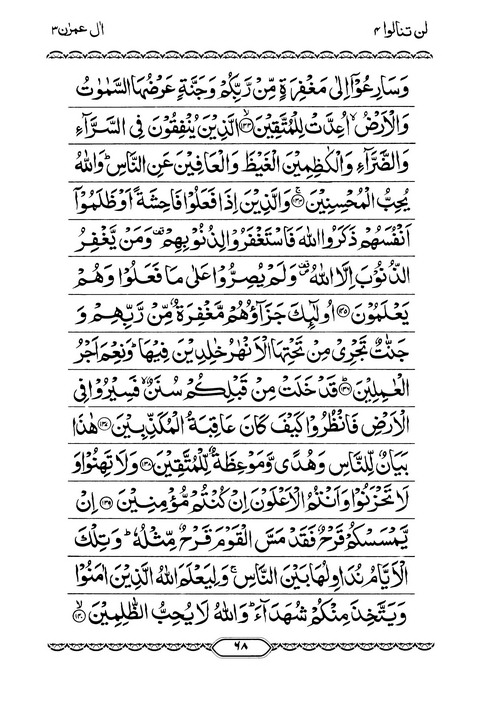 لن تنالوا ۴
اٰل عمرٰن ۳
وَسَارِعُوْۤا اِلٰى مَغْفِرَةٍ مِّنْ رَّبِّكُمْ وَجَنَّةٍ عَرْضُهَا السَّمٰوٰتُ
وَالْاَرْضُ ۙ اُعِدَّتْ لِلْمُتَّقِيْنَ ﴿۱۳۳﴾ الَّذِيْنَ يُنْفِقُوْنَ فِى السَّرَّآءِ
وَالضَّرَّآءِ وَالْكٰظِمِيْنَ الْغَيْظَ وَالْعَافِيْنَ عَنِ النَّاسِ ؕ وَاللّٰهُ
يُحِبُّ الْمُحْسِنِيْنَ ﴿۱۳۴﴾ وَالَّذِيْنَ اِذَا فَعَلُوْا فَاحِشَةً اَوْ ظَلَمُوْۤا
اَنْفُسَهُمْ ذَكَرُوا اللّٰهَ فَاسْتَغْفَرُوْا لِذُنُوْبِهِمْ ۪ وَمَنْ يَّغْفِرُ
الذُّنُوْبَ اِلَّا اللّٰهُ ۪ وَلَمْ يُصِرُّوْا عَلٰى مَا فَعَلُوْا وَهُمْ
يَعْلَمُوْنَ ﴿۱۳۵﴾ اُولٰٓئِكَ جَزَآؤُهُمْ مَّغْفِرَةٌ مِّنْ رَّبِّهِمْ وَ
جَنّٰتٌ تَجْرِىْ مِنْ تَحْتِهَا الْاَنْهٰرُ خٰلِدِيْنَ فِيْهَا ؕ وَنِعْمَ اَجْرُ
الْعٰمِلِيْنَ ﴿۱۳۶﴾ قَدْ خَلَتْ مِنْ قَبْلِكُمْ سُنَنٌ ۙ فَسِيْرُوْا فِى
الْاَرْضِ فَانْظُرُوْا كَيْفَ كَانَ عَاقِبَةُ الْمُكَذِّبِيْنَ ﴿۱۳۷﴾ هٰذَا
بَيَانٌ لِّلنَّاسِ وَهُدًى وَّمَوْعِظَةٌ لِّلْمُتَّقِيْنَ ﴿۱۳۸﴾ وَلَا تَهِنُوْا وَ
لَا تَحْزَنُوْا وَاَنْتُمُ الْاَعْلَوْنَ اِنْ كُنْتُمْ مُّؤْمِنِيْنَ ﴿۱۳۹﴾ اِنْ
يَّمْسَسْكُمْ قَرْحٌ فَقَدْ مَسَّ الْقَوْمَ قَرْحٌ مِّثْلُهٗ ؕ وَتِلْكَ
الْاَيَّامُ نُدَاوِلُهَا بَيْنَ النَّاسِ ۚ وَلِيَعْلَمَ اللّٰهُ الَّذِيْنَ اٰمَنُوْا
وَيَتَّخِذَ مِنْكُمْ شُهَدَآءَ ؕ وَاللّٰهُ لَا يُحِبُّ الظّٰلِمِيْنَ ﴿۱۴۰﴾ ۙ
۶۸